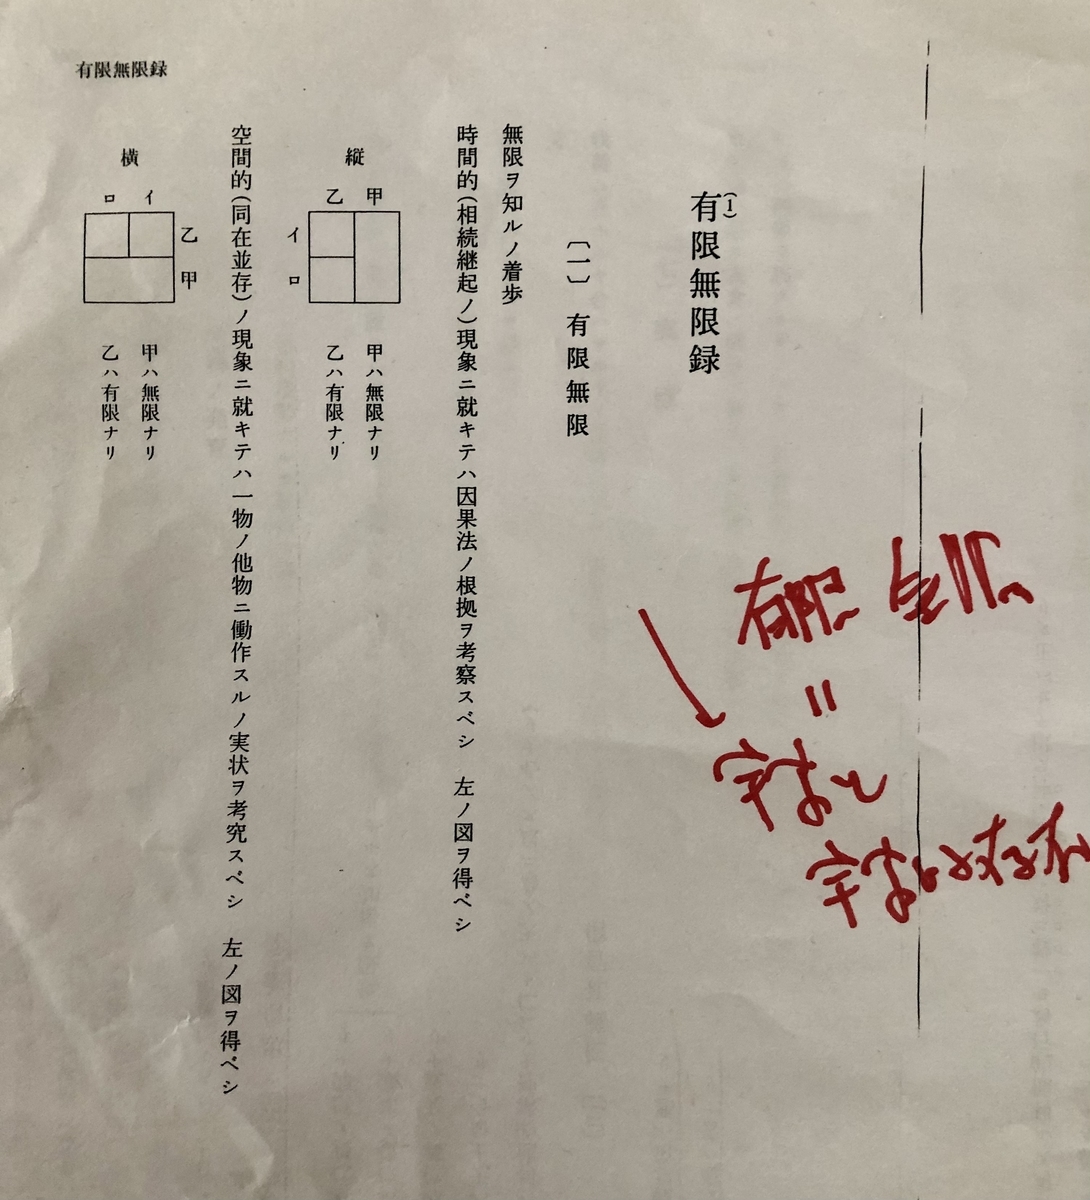 有限無限録
(1)
有限無限録
〔一〕 有限無限
無限ヲ知ルノ着歩
時間的(相続継起ノ)現象ニ就キテハ因果法ノ根拠ヲ考察スベシ 左ノ図ヲ得ベシ
縦
甲
乙
イ
ロ
甲ハ無限ナリ
乙ハ有限ナリ
空間的(同在並存)ノ現象ニ就キテハ一物ノ他物ニ働作スルノ実状ヲ考究スベシ 左ノ図ヲ得ベシ
横
イ
ロ
乙
甲
甲ハ無限ナリ
乙ハ有限ナリ
有限 無限
=